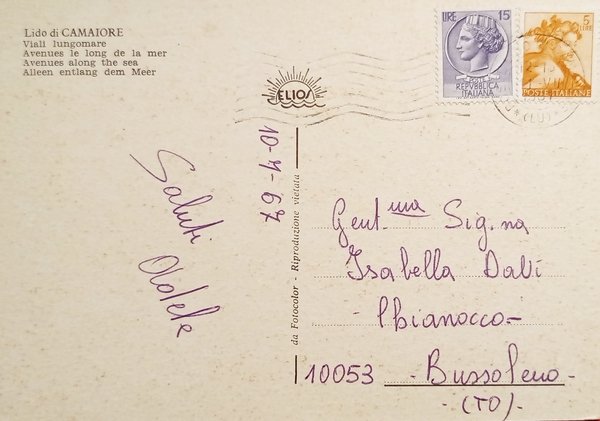 Lido di CAMAIORE
Viali lungomare
Avenues le long de la mer
Avenues along the sea
Alleen entlang dem Meer
ELIOS
LIRE 15
REPVBBLICA
ITALIANA
5
LIRE
POSTE ITALIANE
(LU)
10-4-67
Saluti
da Fotocolor - Riproduzione vietata -
Gent.ma Sig.na
Isabella Dalì
Chianocco-
10053 - Bussoleno -
- (TO) -